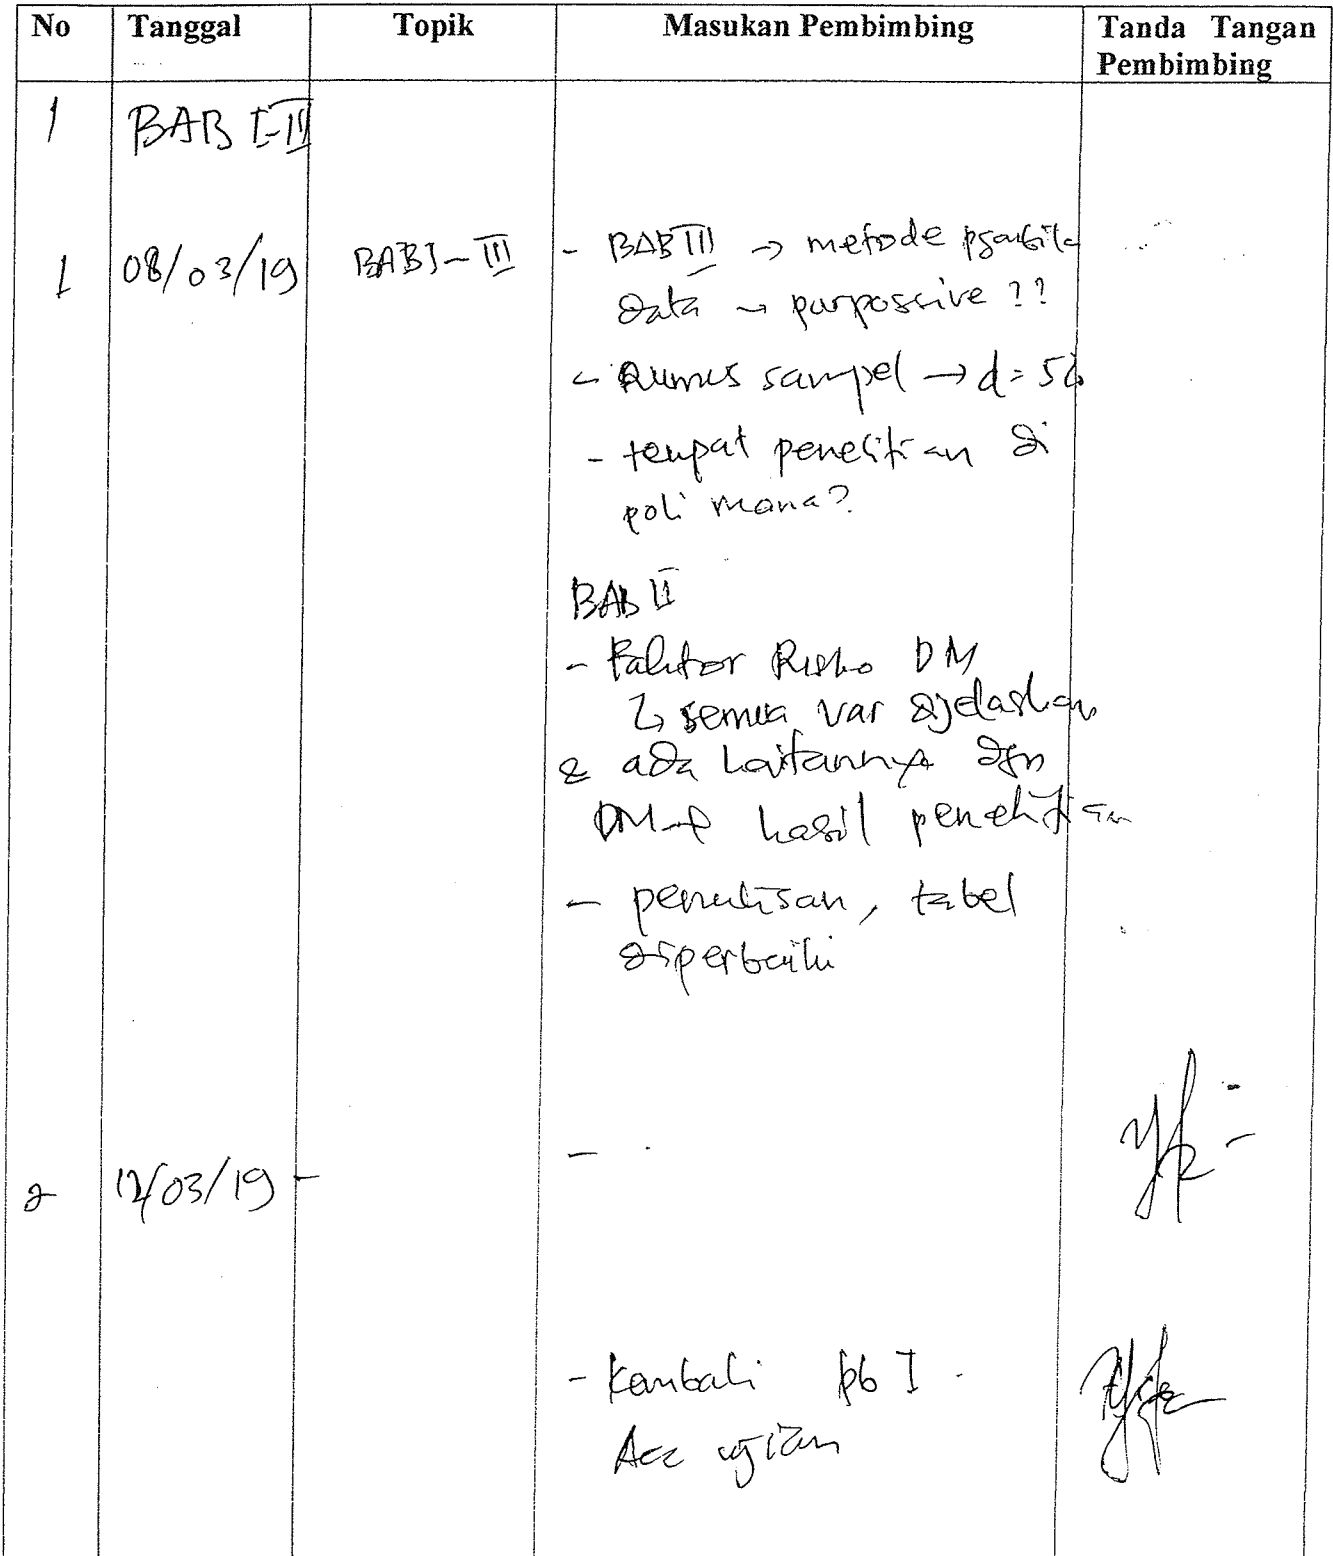 No Tanggal Topik Masukan Pembimbing Tanda Tangan
Pembimbing
1 BAB I-III
1 08/03/19 BAB I-III - BAB III → metode
data → purpossive ??
- Rumus sampel → d=5%
- tempat penelitian di
poli mana?
BAB II
- Faktor Risiko DM
↳ semua var dijelaskan
& ada kaitannya dgn
DM → hasil penelitian
- penulisan, tabel
diperbaiki
-
2 12/03/19 -
- Kembali pb I.
Acc ujian